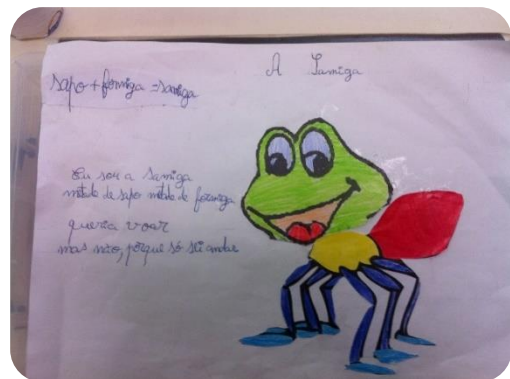 A Samiga
sapo + formiga = samiga
Eu sou a Samiga
metade de sapo metade de formiga
queria voar
mas não, porque só sei andar